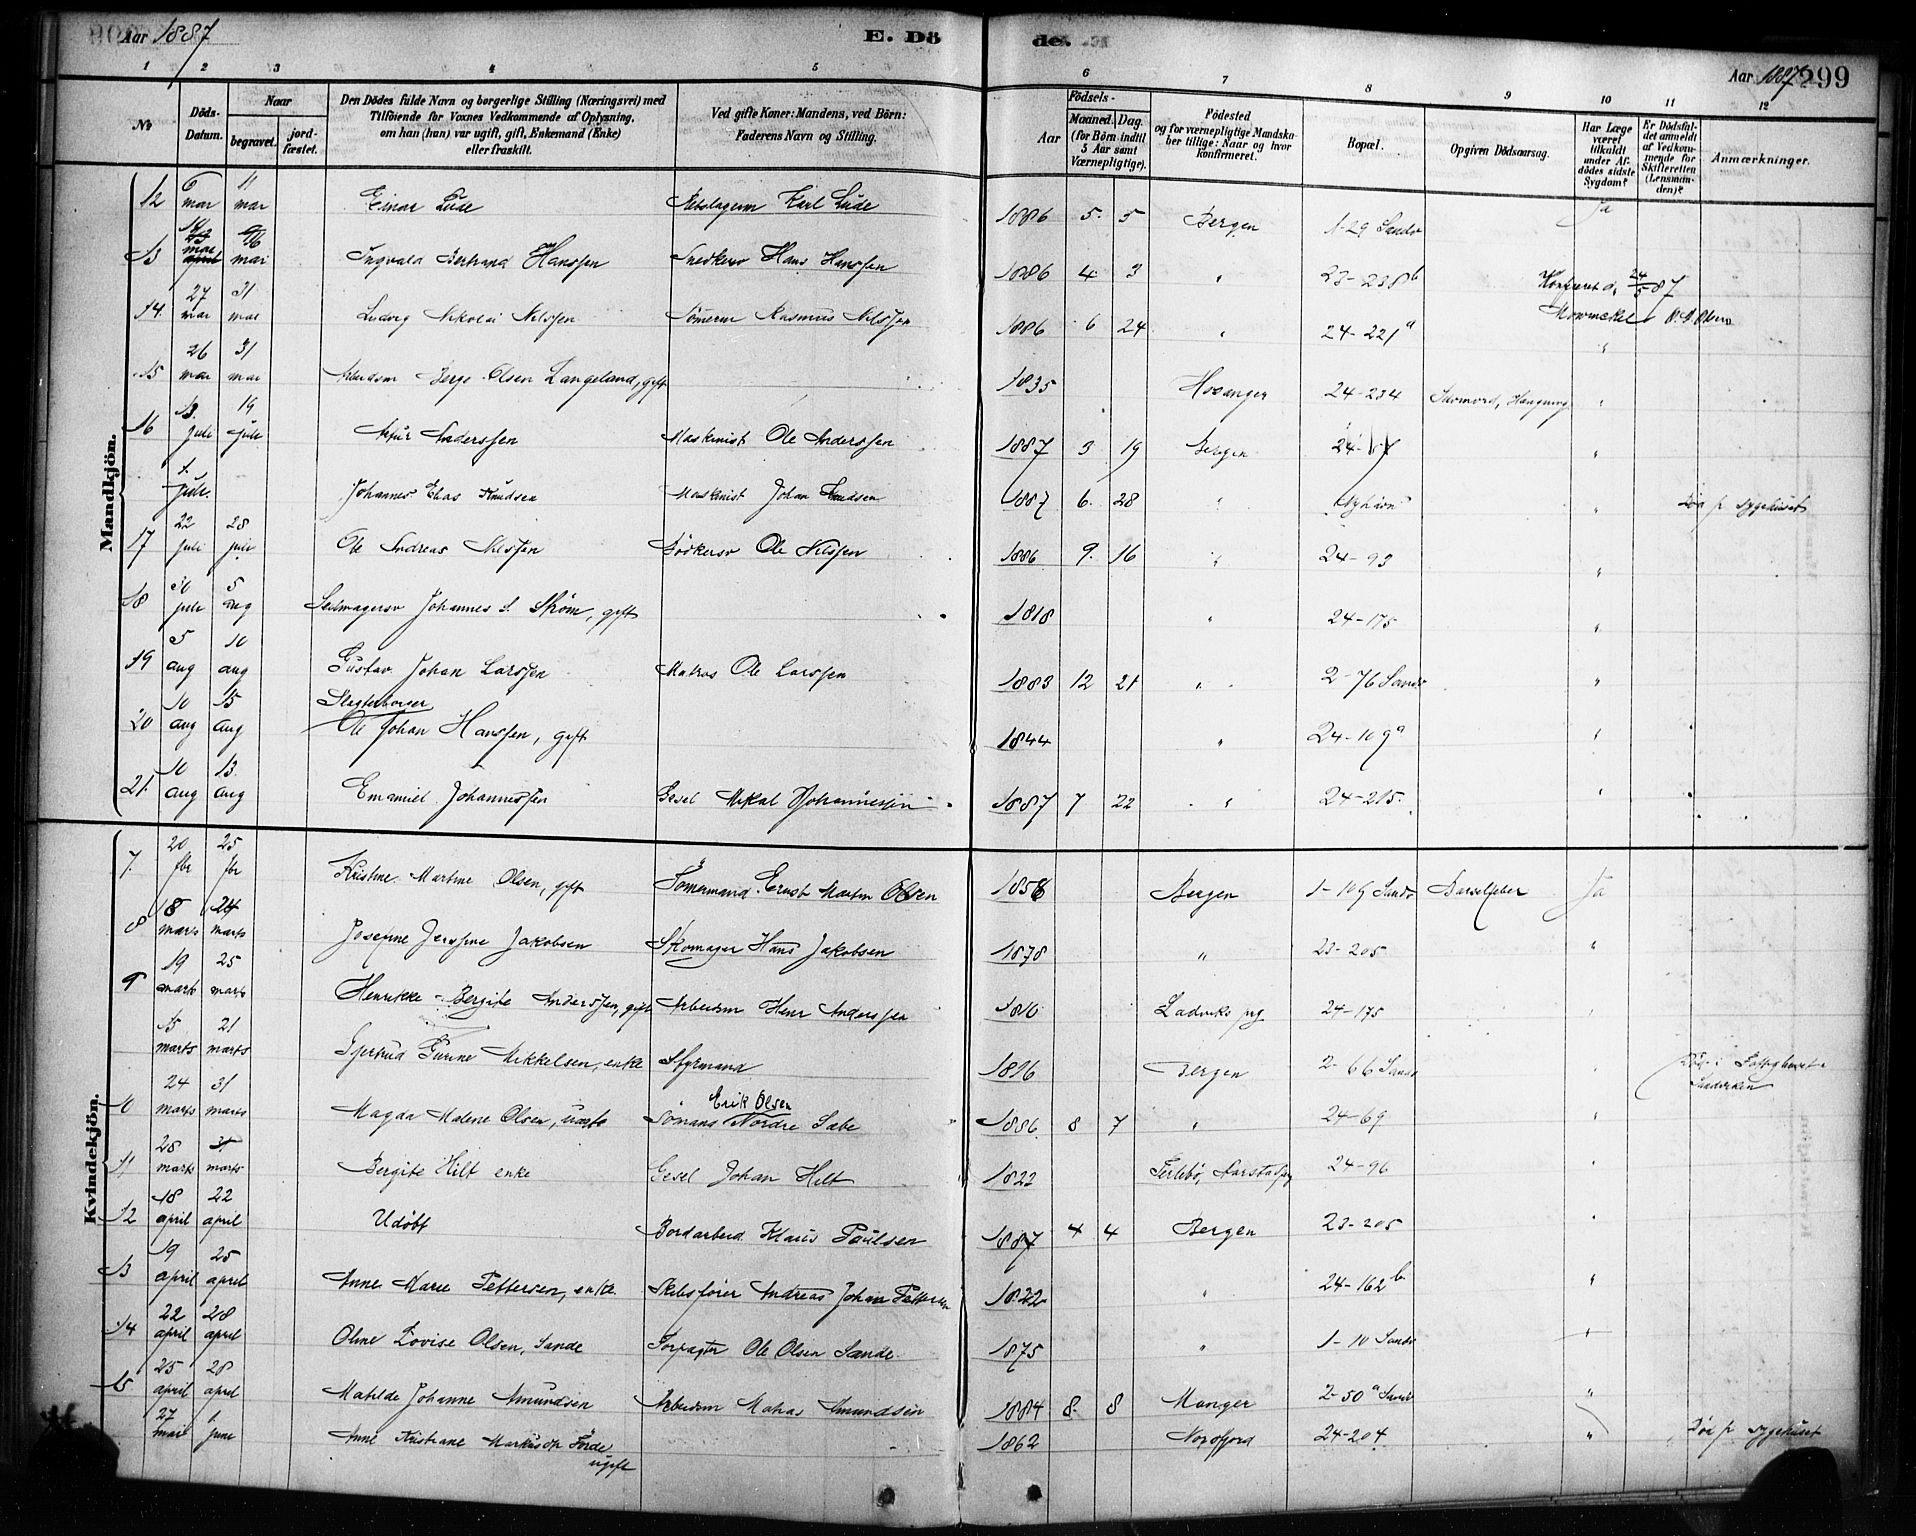 Aar 1887 E. Döde. Aar 1887 299
1 2 3 4 5 6 7 8 9 10 11 12
No
Döds-Datum.
Naar
begravet. jordfæstet.
Den Dödes fulde Navn og borgerlige Stilling (Næringsvei) med
Tilföiende for Voxnes Vedkommende af Oplysning,
om han (hun) var ugift, gift, Enkemand (Enke)
eller fraskilt.
Ved gifte Koner: Mandens, ved Börn:
Faderens Navn og Stilling.
Födsels-
Aar
Maaned. Dag.
(for Börn indtil
5 Aar samt
Værnepligtige).
Födested
og for værnepligtige Mandskaber tillige: Naar og hvor
konfirmeret.
Bopæl.
Opgiven Dödsaarsag.
Har Læge
været
tilkaldt
under Afdödes sidste
Sygdom?
Er Dödsfaldet anmeldt
af Vedkommende for
Skifteretten
(Lensmanden)?
Anmærkninger.
Mandkjön.
12 6 mar 11 mar Einar Lude Karl Lude 1886 5 5 Bergen 1-29 Sandv Ja
13 mar 16 mai Ingvald Bertrand Hanssen Snedkersv Hans Hanssen 1886 4 3 " 23-238b
14 27 mar 31 mar Ludvig Nikolai Nilssen Tömerm Rasmus Nilssen 1886 6 24 " 24-221a "
15 26 mar 31 mar Arbeidsm Berge Olsen Langeland, gift 1835 Hosanger 24-234 Selvmord, Hængning "
16 13 juli 19 juli Anderssen Maskinist Ole Anderssen 1887 3 19 Bergen "
1 juli Johannes Elias Knudsen Maskinist Johan Knudsen 1887 6 28 " Nyhavn " Död p sygehuset
17 22 juli 28 juli Ole Andreas Nilssen Bödkersv Ole Nilssen 1886 9 16 " 24-93 "
18 30 juli 5 aug Seilmagersv Johannes S. Ström, gift 1818 " 24-175 "
19 5 aug 10 aug Gustav Johan Larssen Matros Ole Larssen 1883 12 21 " 2-76 Sandv "
20 10 aug 15 aug Slagterborger Ole Johan Hanssen, gift 1844 " 24-109a "
21 10 aug 13 aug Emanuel Johannessen Gesel Mikal Johannessen 1887 7 22 " 24-215 "
Kvindekjön.
7 20 fbr 25 fbr Kristine Martine Olsen, gift Tömermand Ernst Martin Olsen 1858 Bergen 1-109 Sandv Barselfeber Ja
8 18 marts 24 marts Josefine Jakobsen Skomager Hans Jakobsen 1878 " 23-205 "
9 19 marts 25 marts Henrikke Bergite Anderssen, gift Arbeidsm Henr Anderssen 1810 Ladviks prg 24-175
15 marts 21 marts Gjertrud Gurine Mikkelsen, enke Styrmand Bergen 2-66 Sandv
10 24 marts 31 marts Magda Malene Olsen, Erik Olsen Nordre Sæbe 1886 8 7 " 24-69 "
11 28 marts 31 marts Bergite Hilt enke Gesel Johan Hilt 1822 24-96
12 18 april 22 april Udöbt Bordarbeid Klaus Paulsen 1887 4 4 Bergen 23-205
13 19 april 25 april Anne Marie Pettersen, enke Skibsförer Andreas Johan Pettersen 1822 " 24-162b "
14 22 april 28 april Oline Lovise Olsen, Sande Forpagter Ole Olsen Sande 1875 " 1-10 Sandv "
15 25 april 28 april Matilde Johanne Amundsen Arbeidsm Matias Amundsen 1884 8 8 Manger 2-50a Sandv "
27 mai 1 june Anne Kristiane Markusdtr Förde ugift 1862 Nordfjord 24-204 " Död p sygehuset